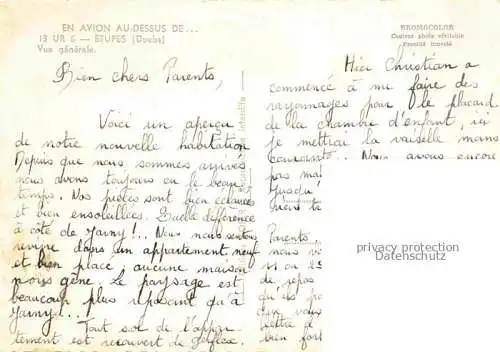 EN AVION AU-DESSUS DE...
13 UR 6 — ETUPES (Doubs)
Vue générale.
BROMOCOLOR
Couleur photo véritable
Reproduction interdite
Bien chers Parents,
Voici un aperçu
de notre nouvelle habitation
Depuis que nous sommes arrivés
nous avons toujours eu le beau
temps. Nos pièces sont bien éclairées
et bien ensoleillées. Quelle différence
à côté de Jarny!.. Nous nous sentons
revivre dans un appartement neuf
et bien placé, aucune maison
nous gêne. Le paysage est
beaucoup plus reposant qu'à
Jarny!...
Tout sol de l'appar-
tement est recouvert de gerflex.
Hier Christian a
commencé à me faire des
rayonnages pour le placard
de la chambre d'enfant, ici
je mettrai la vaiselle moins
courante... Nous avons encore
pas mal
Parents,
nous
de repos
qu'ils
bien fort
privacy protection
Datenschutz